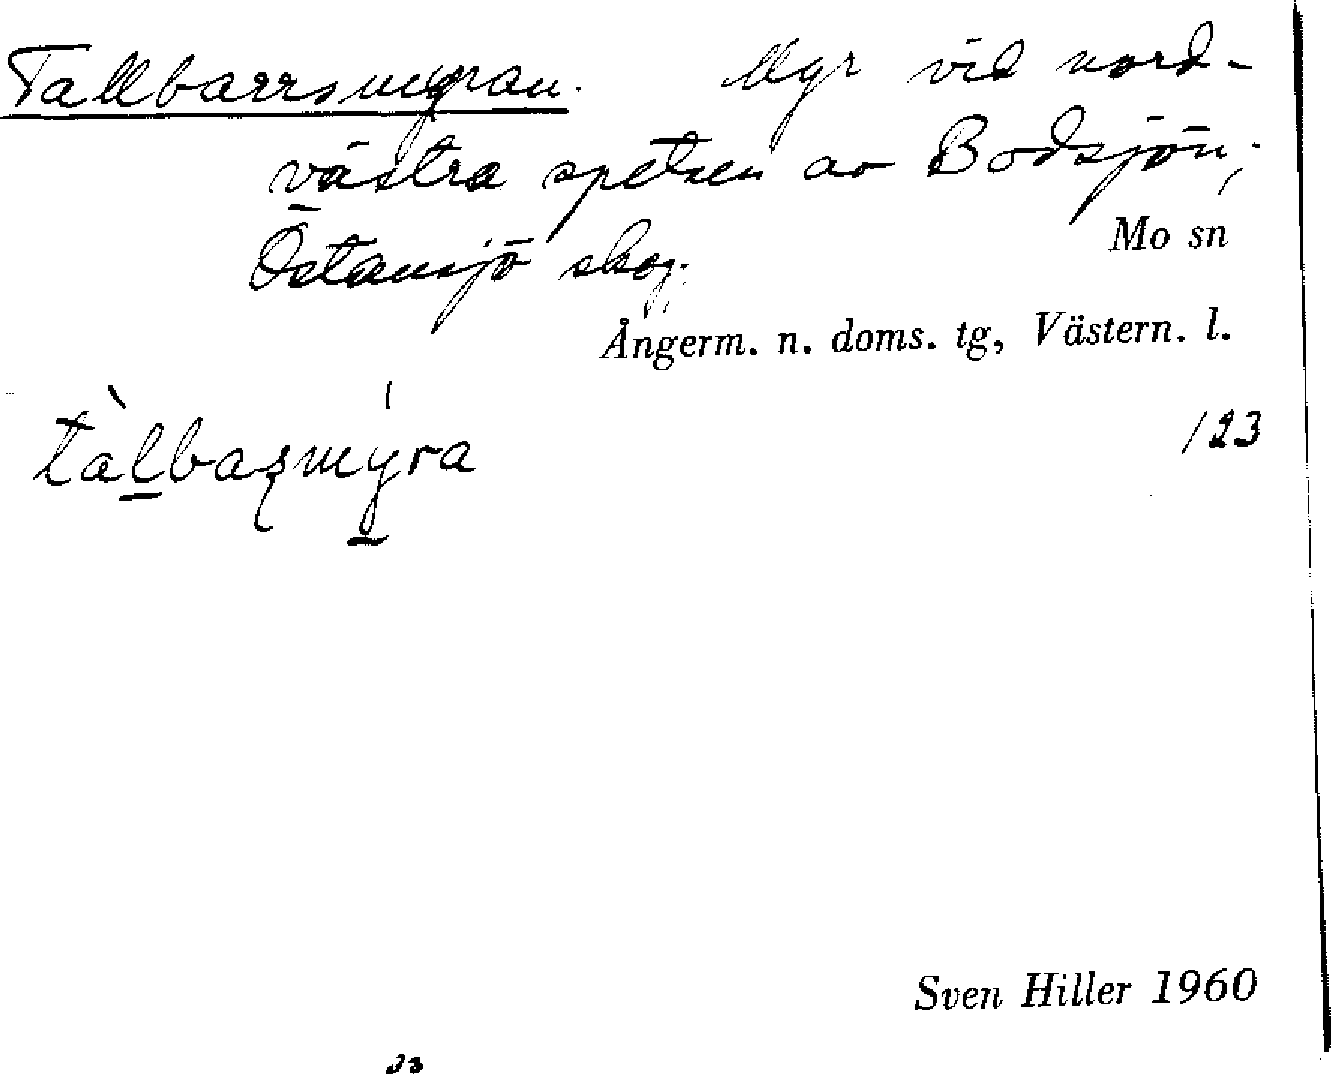 Tallbarrsmyran. Myr vid nord-
västra spetsen av Bodsjön;
Östansjö skog;
Mo sn
Ångerm. n. doms. tg, Västern. l.
tàl̠baʂmy̠ra
123
Sven Hiller 1960